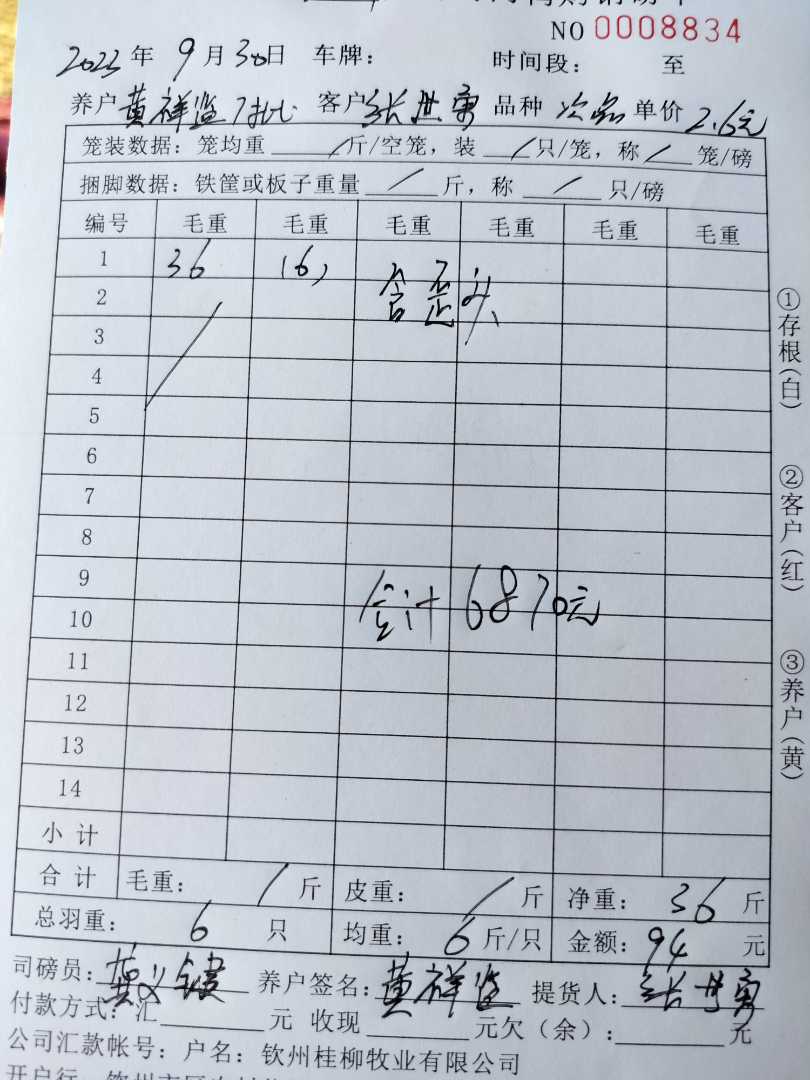 NO 0008834
2023年9月30日 车牌： 时间段： 至
养户 黄祥 7批 客户 张世勇 品种 次品 单价 2.6元
笼装数据：笼均重 / 斤/空笼，装 / 只/笼，称 / 笼/磅
捆脚数据：铁筐或板子重量 / 斤，称 / 只/磅
编号 毛重 毛重 毛重 毛重 毛重 毛重
1 36 (6)
2 含歪头
3
4
5
6
7
8
9
10 合计6870元
11
12
13
14
小计
合计 毛重： / 斤 皮重： / 斤 净重： 36 斤
总羽重： 6 只 均重： 6 斤/只 金额： 94 元
司磅员： 黄义 养户签名： 黄祥 提货人： 张世勇
付款方式：汇 元 收现 元欠（余）： 元
公司汇款帐号：户名：钦州桂柳牧业有限公司
①存根（白）
②客户（红）
③养户（黄）